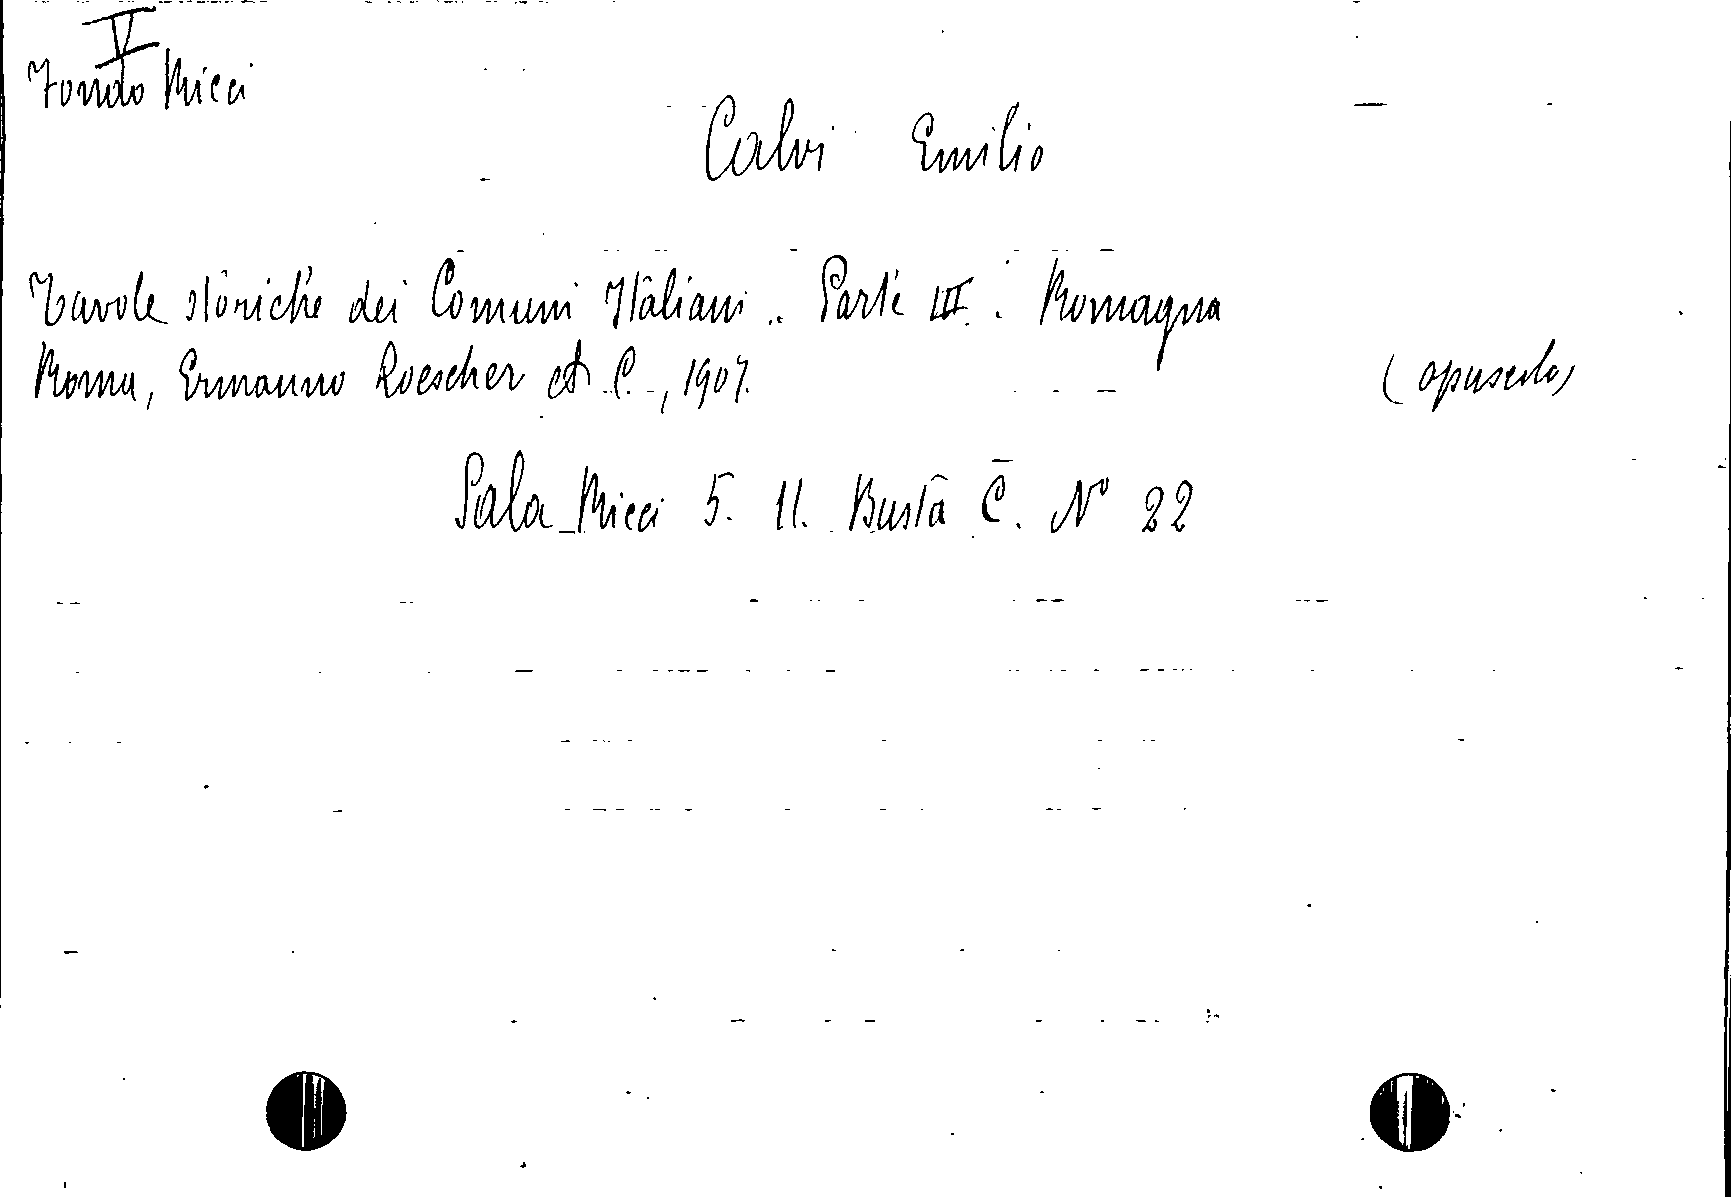 V
Fondo Ricci
Calvi Emilio
Tavole storiche dei Comuni Italiani. Parte III. Romagna
Roma, Ermanno Loescher et C., 1907. (opuscolo)
Sala Ricci 5. 11. Busta C. N° 22